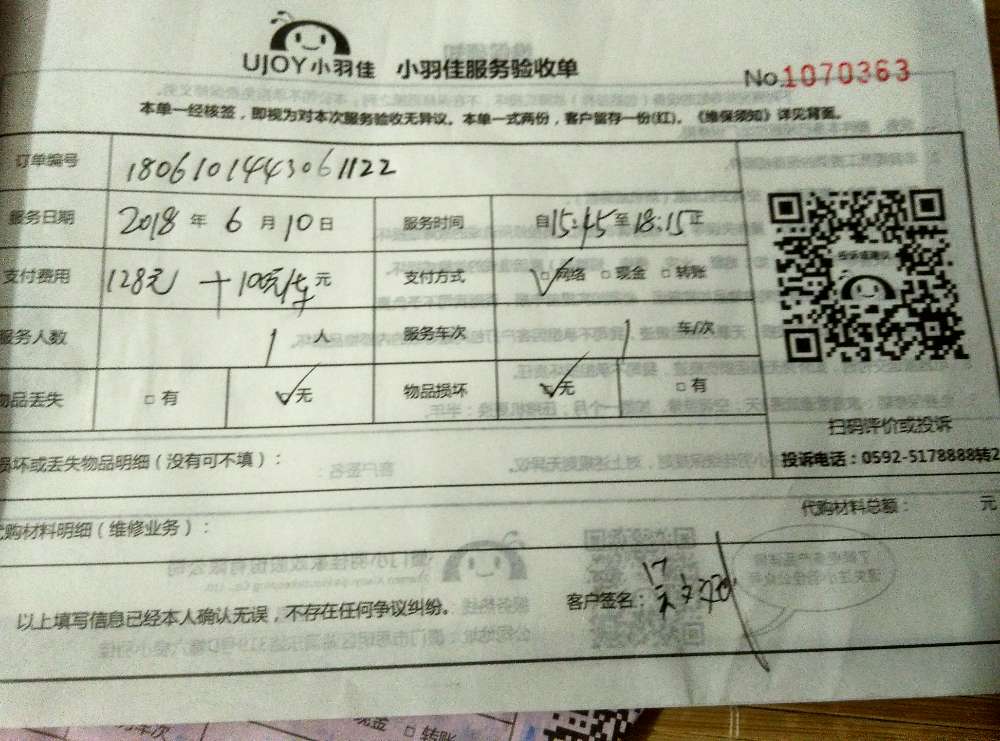 UJOY小羽佳 小羽佳服务验收单
No.1070363
本单一经核签，即视为对本次服务验收无异议。本单一式两份，客户留存一份(红)。《维保须知》详见背面。
订单编号 18061014430611122
服务日期 2018 年 6 月 10 日 服务时间 自15:45至18:15止
支付费用 128元 + 100元/车 元 支付方式 ☑网络 □现金 □转账
服务人数 1 人 服务车次 1 车/次
物品丢失 □有 ☑无 物品损坏 ☑无 □有
投诉或建议
扫码评价或投诉
投诉电话：0592-5178888转2
损坏或丢失物品明细（没有可不填）：
代购材料总额： 元
代购材料明细（维修业务）：
以上填写信息已经本人确认无误，不存在任何争议纠纷。
客户签名：
现金 □转账